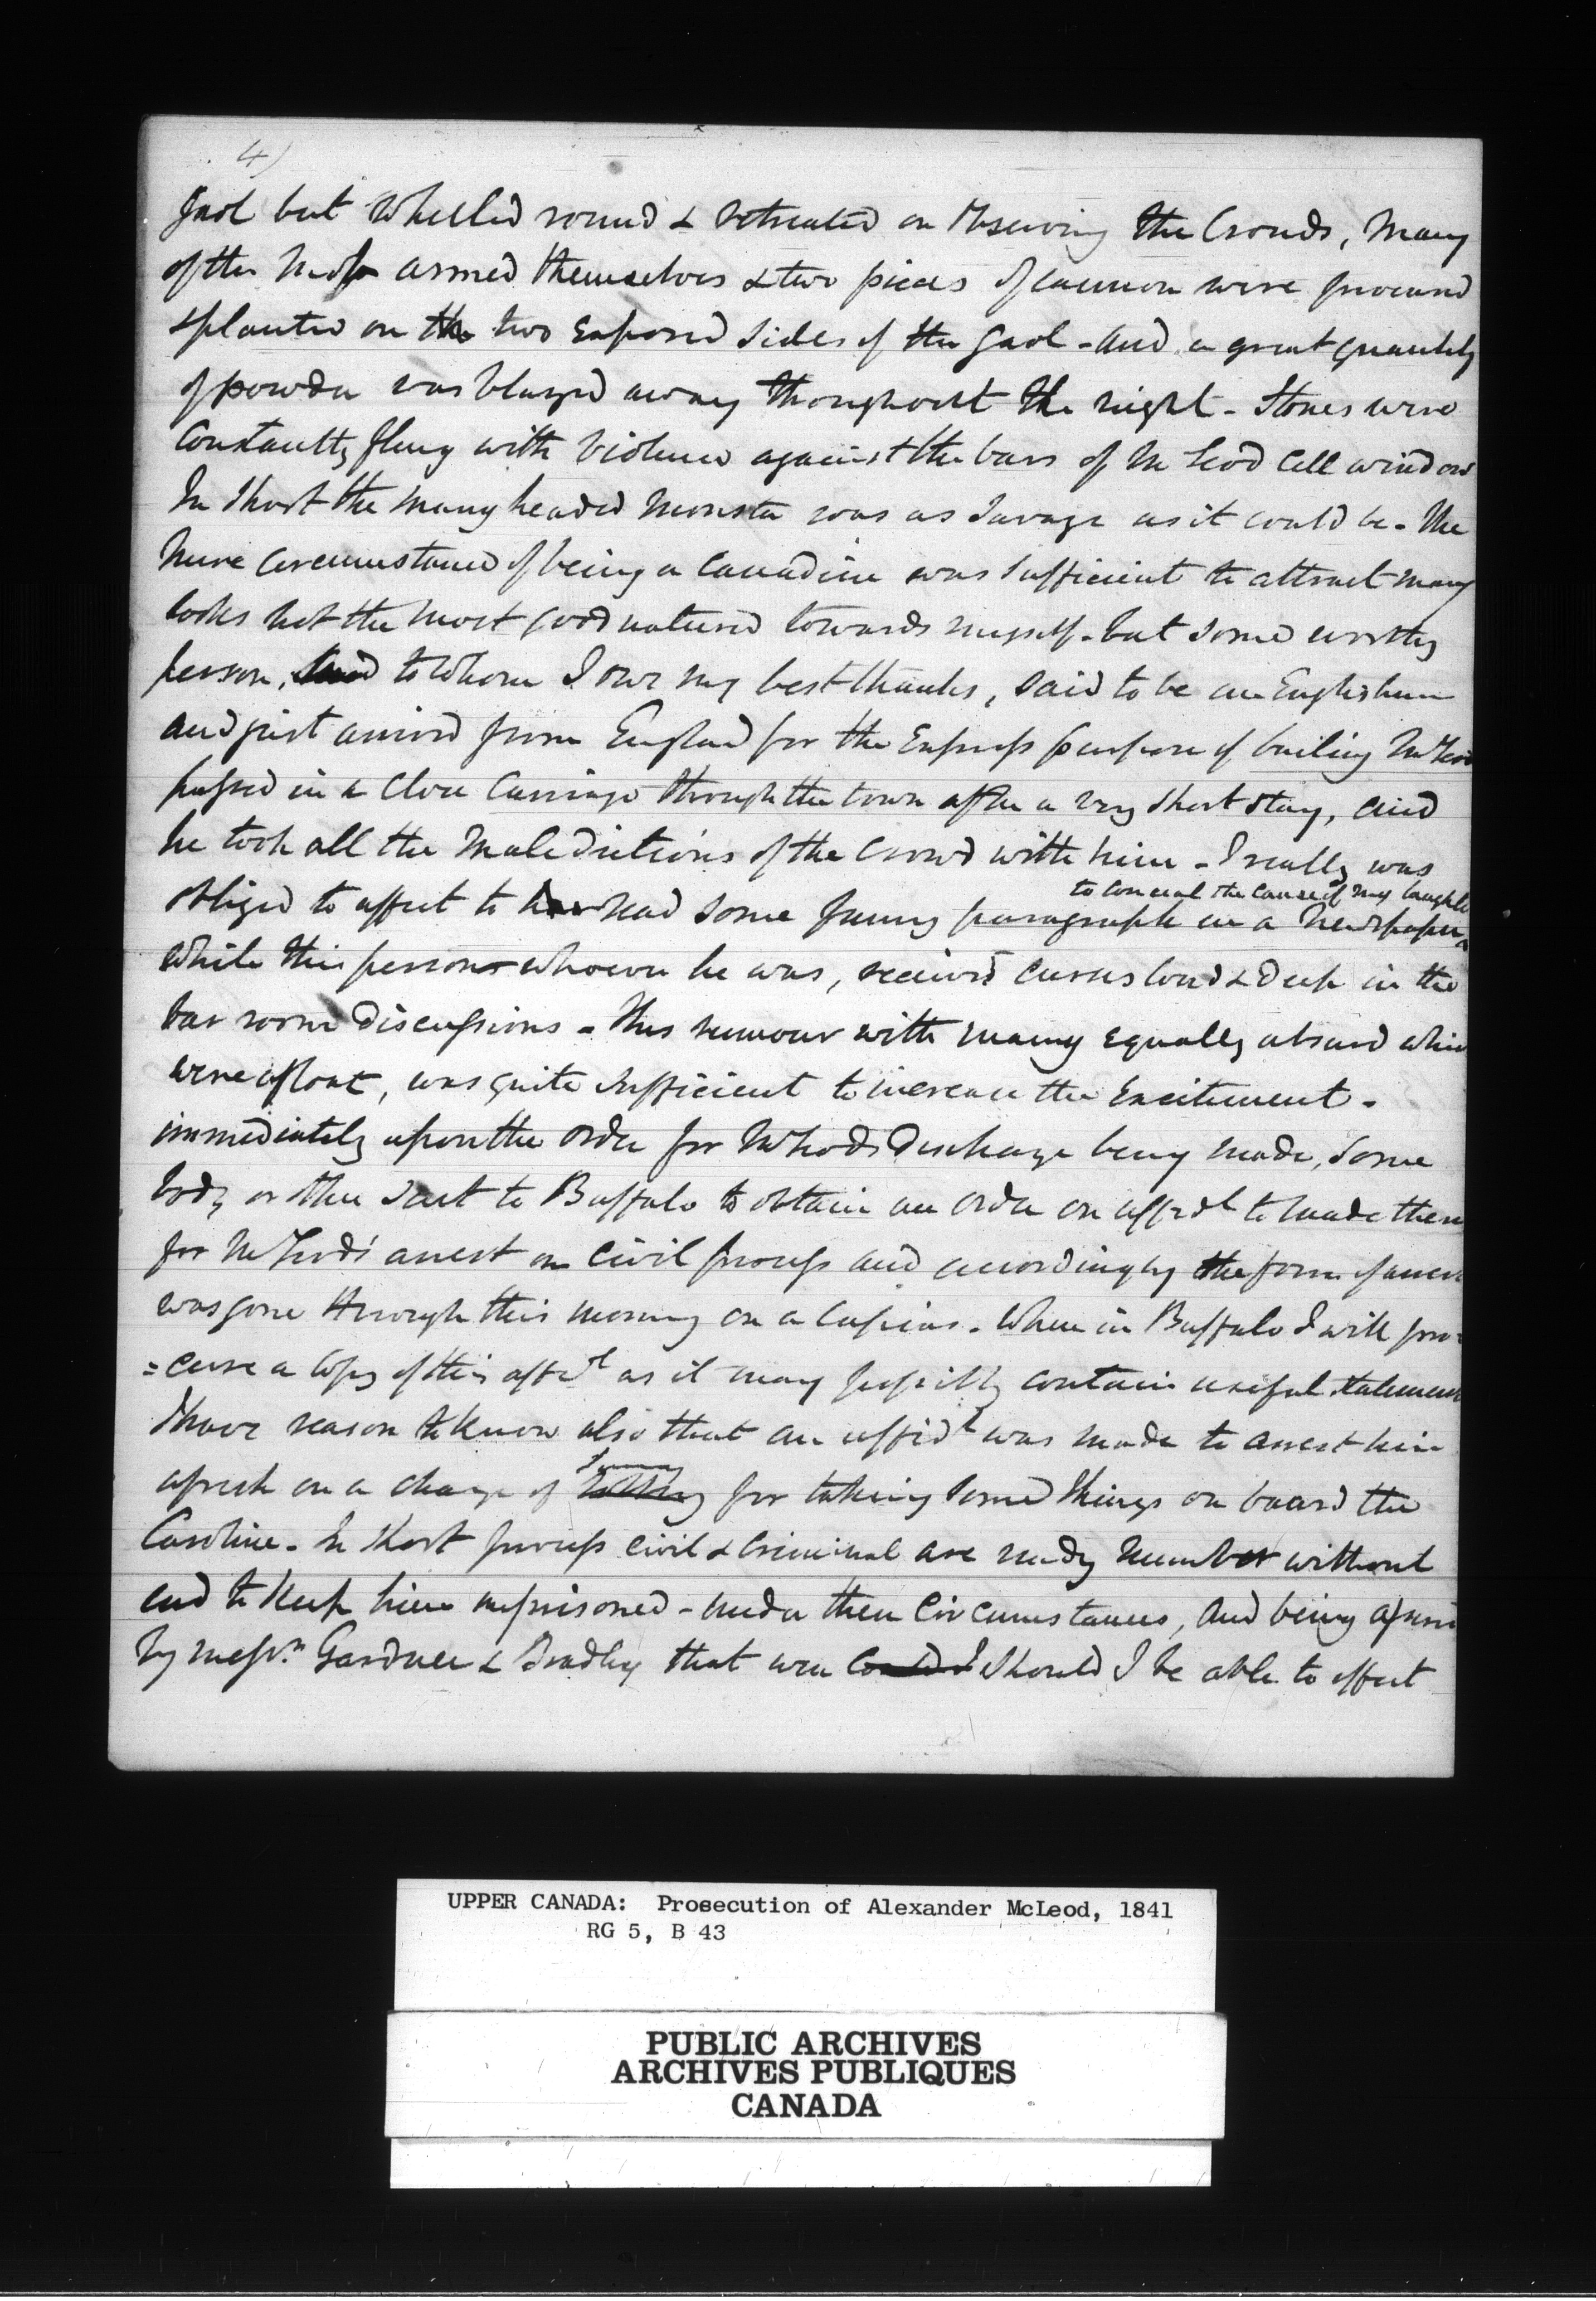 4)
Gaol but wheeled round & retreated on observing the Crowds, Many
of the Mob armed themselves & two pieces of cannon were procured
& planted on the two exposed sides of the Gaol - and a great quantity
of powder was blazed away throughout the night - Stones were
Constantly flung with violence against the bars of McLeod Cell window
In Short the many headed Monster was as Savage as it could be - The
Mere Circumstance of being a Canadian was Sufficient to attract many
looks not the most good natured towards myself - but some worthy
person, to whom I owe my best thanks, said to be an Englishman
and just arrived from England for the Express purpose of bailing McLeod
passed in a Close Carriage through the town after a very short stay, and
he took all the Maledictions of the Crowd with him - I really was
to conceal the cause of my laughter
obliged to affect to read some funny paragraph in a Newspaper
while this person whoever he was, received curses loud & deep in the
bar room Discussions - This rumour with many equally absurd which
were afloat, was quite sufficient to increase the Excitement -
immediately upon the order for McLeods Discharge being made, some
body or other sent to Buffalo to obtain an order on affidt to made there
for McLeods' arrest on Civil process and accordingly the form of arrest
was gone through this morning on a Capias - When in Buffalo I will pro=
=cure a Copy of this affidt as it may possibly contain useful statements
I have reason to know also that an affidt was made to arrest him
afresh on a charge of for taking some things on board the
Caroline - In short process civil & criminal are ready number without
end to keep him imprisoned - under these Circumstances, and being assured
by Messrs. Gardner & Bradley that were Could I should I be able to effect
UPPER CANADA: Prosecution of Alexander McLeod, 1841
RG 5, B 43
PUBLIC ARCHIVES
ARCHIVES PUBLIQUES
CANADA